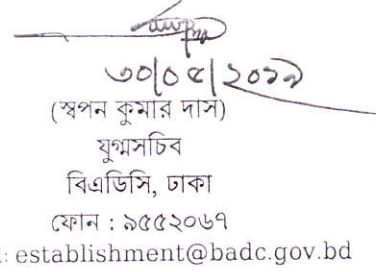 ৩০/০৫/২০১৯
(স্বপন কুমার দাস)
যুগ্মসচিব
বিএডিসি, ঢাকা
ফোন : ৯৫৫২০৬৭
: establishment@badc.gov.bd